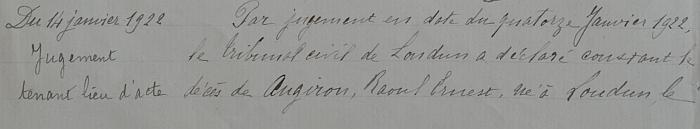 Du 14 janvier 1922 Par jugement en date du quatorze Janvier 1922,
Jugement le tribunal civil de Loudun a déclaré constant le
tenant lieu d'acte décès de Augiron, Raoul Ernest, né à Loudun, le